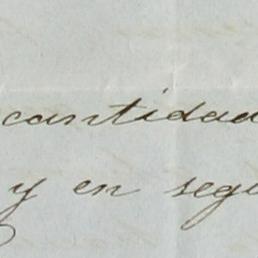 cantidad
y en segu